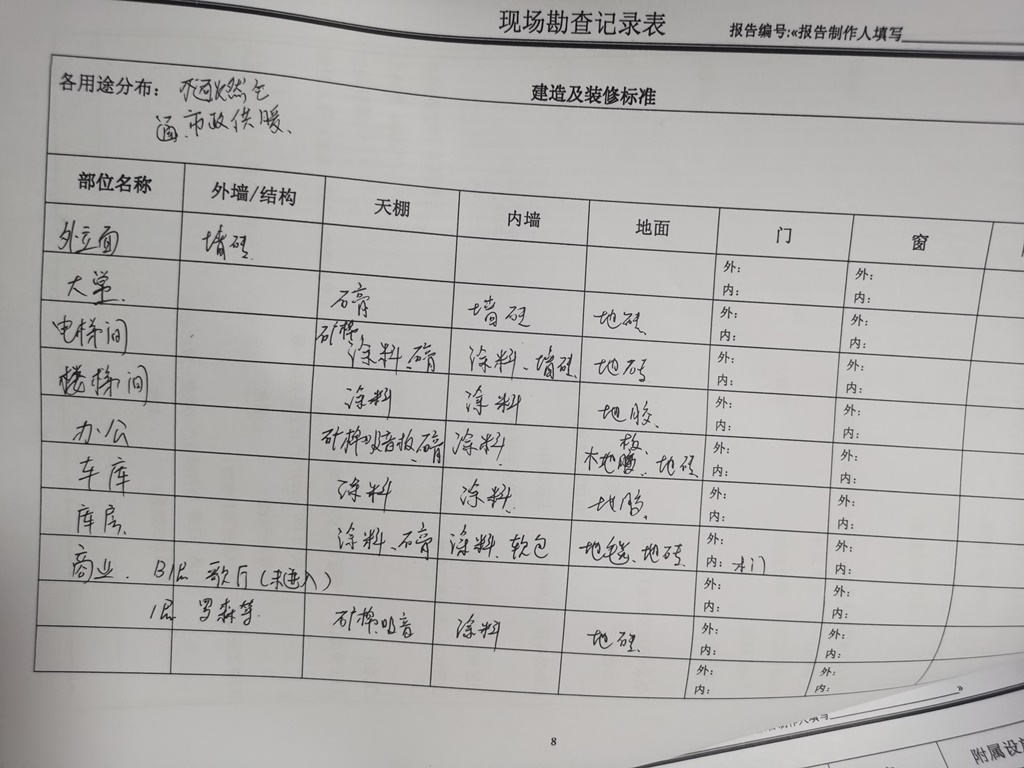 现场勘查记录表 报告编号:«报告制作人填写
各用途分布: 建造及装修标准
通市政供暖、
部位名称 外墙/结构 天棚 内墙 地面 门 窗
外立面 墙砖 外: 内: 外: 内:
大堂 石膏 墙砖 地砖 外: 内: 外: 内:
电梯间 矿棉 涂料、石膏 涂料、墙砖 地砖 外: 内: 外: 内:
楼梯间 涂料 涂料 地胶 外: 内: 外: 内:
办公 矿棉吸音板、石膏 涂料 木地板、地砖 外: 内: 外: 内:
车库 涂料 涂料 地胶 外: 内: 外: 内:
库房 涂料、石膏 涂料、软包 地毯、地砖 外: 内: 木门 外: 内:
商业 B1层 歌厅(未进入) 外: 内: 外: 内:
1层 罗森等 矿棉吸音 涂料 地砖 外: 内: 外: 内:
外: 内: 外: 内:
8
附属设